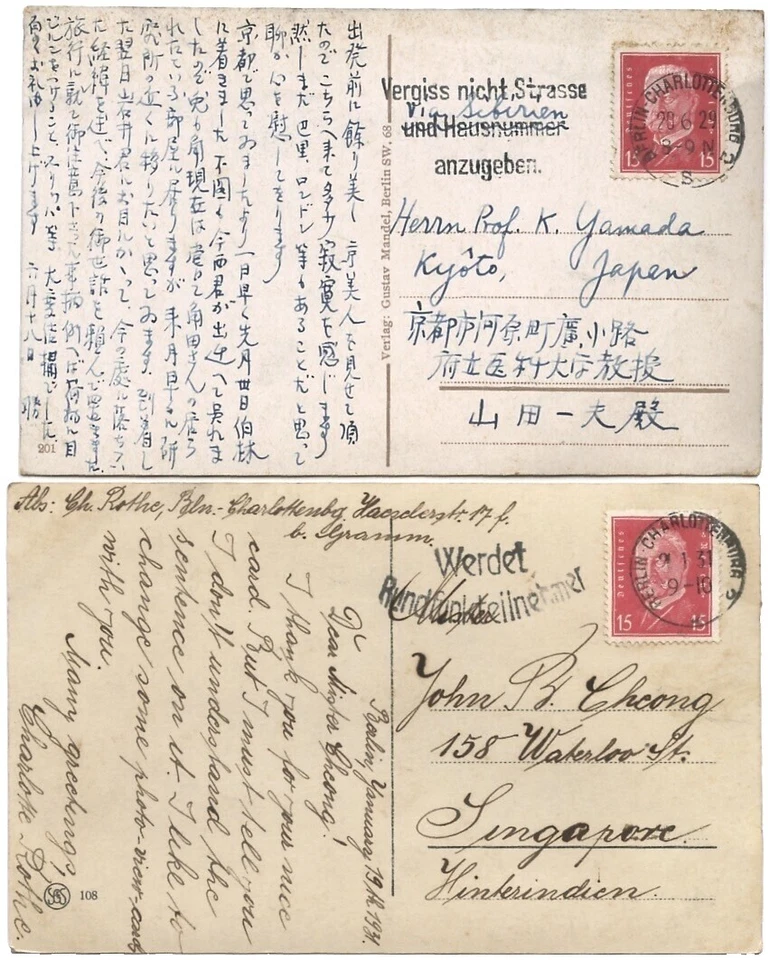 出発前に餘り美しい京美人を見せて頂
たのでこちらへ来て多少寂寞を感じます
然しまだ巴里、ロンドン等もあることだと思って
聊か心を慰して
京都で思ってゐましたより一日早く先月廿日伯林
に着きました 今西君が出迎へて呉れま
したので兎も角現在は 角田さんの居ら
れたといふ部屋に居りますが来月早々研
究所の近くに移りたいと思ってゐます、到着し
た翌日岩井君にお目にかかって、今の處に落ちつい
た経緯を述べ、今後の御世話を頼んで置きました
旅行に就て御注意下さった事柄、例へば荷物に目
じるしをつけること、スリッパ等
お礼申し上げます 六月十八日 勝
201
Verlag: Gustav Mandel, Berlin SW, 68
Vergiss nicht, Strasse
via Sibirien
und Hausnummer
anzugeben.
Deutsches Reich
15 15
BERLIN-CHARLOTTENBURG 2
28 6 29
8-9 N
S
Herrn Prof. K. Yamada
Kyôto, Japan
京都市河原町廣小路
府立医科大学教授
山田一夫殿
Abs: Ch. Rothe, Bln.-Charlottenbg, Haeselerstr. 17 f.
b. Gramm.
Berlin, January 19th 1931.
Dear Mister Cheong!
I thank you for your nice
card. But I must tell you
I don't understand the
sentence on it. I like to
change some photo-view-cards
with you.
Many greetings!
Charlotte Rothe.
108
Werdet
Rundfunkteilnehmer
Deutsches Reich
15 15
BERLIN-CHARLOTTENBURG 2
1 31
9-10
Mister
John B. Cheong
158 Waterloo St.
Singapore.
Hinterindien.